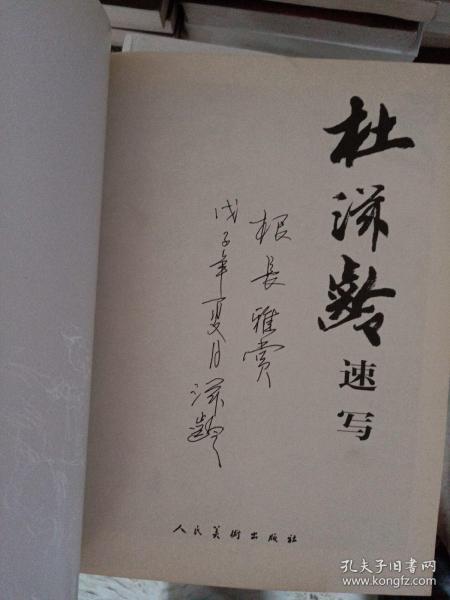 杜滋齡
速写
根長雅赏
戊子年夏月滋齡
人民美術出版社
孔夫子旧书网
www.kongfz.com